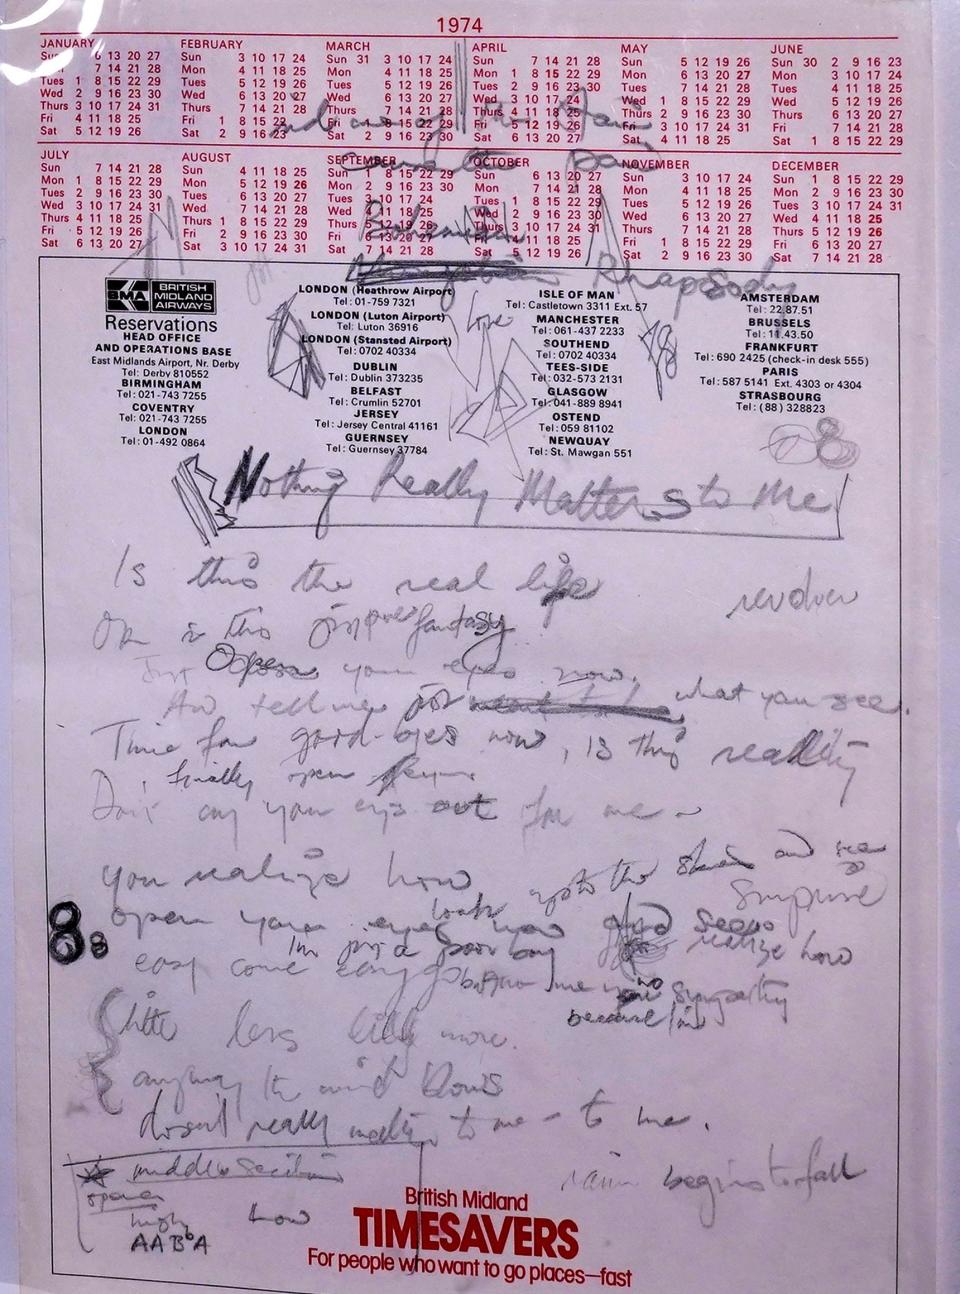 1974
JANUARY FEBRUARY MARCH APRIL MAY JUNE
Sun 6 13 20 27 Sun 3 10 17 24 Sun 31 3 10 17 24 Sun 7 14 21 28 Sun 5 12 19 26 Sun 30 2 9 16 23
7 14 21 28 Mon 4 11 18 25 Mon 4 11 18 25 Mon 1 8 15 22 29 Mon 6 13 20 27 Mon 3 10 17 24
Tues 1 8 15 22 29 Tues 5 12 19 26 Tues 5 12 19 26 Tues 2 9 16 23 30 Tues 7 14 21 28 Tues 4 11 18 25
Wed 2 9 16 23 30 Wed 6 13 20 27 Wed 6 13 20 27 Wed 3 10 17 24 Wed 1 8 15 22 29 Wed 5 12 19 26
Thurs 3 10 17 24 31 Thurs 7 14 21 28 Thurs 7 14 21 28 Thurs 4 11 18 25 Thurs 2 9 16 23 30 Thurs 6 13 20 27
Fri 4 11 18 25 Fri 1 8 15 22 Fri 1 8 15 22 29 Fri 5 12 19 26 Fri 3 10 17 24 31 Fri 7 14 21 28
Sat 5 12 19 26 Sat 2 9 16 23 Sat 2 9 16 23 30 Sat 6 13 20 27 Sat 4 11 18 25 Sat 1 8 15 22 29
JULY AUGUST SEPTEMBER OCTOBER NOVEMBER DECEMBER
Sun 7 14 21 28 Sun 4 11 18 25 Sun 1 8 15 22 29 Sun 6 13 20 27 Sun 3 10 17 24 Sun 1 8 15 22 29
Mon 1 8 15 22 29 Mon 5 12 19 26 Mon 2 9 16 23 30 Mon 7 14 21 28 Mon 4 11 18 25 Mon 2 9 16 23 30
Tues 2 9 16 23 30 Tues 6 13 20 27 Tues 3 10 17 24 Tues 1 8 15 22 29 Tues 5 12 19 26 Tues 3 10 17 24 31
Wed 3 10 17 24 31 Wed 7 14 21 28 Wed 4 11 18 25 Wed 2 9 16 23 30 Wed 6 13 20 27 Wed 4 11 18 25
Thurs 4 11 18 25 Thurs 1 8 15 22 29 Thurs 5 12 19 26 Thurs 3 10 17 24 31 Thurs 7 14 21 28 Thurs 5 12 19 26
Fri 5 12 19 26 Fri 2 9 16 23 30 Fri 6 13 20 27 Fri 4 11 18 25 Fri 1 8 15 22 29 Fri 6 13 20 27
Sat 6 13 20 27 Sat 3 10 17 24 31 Sat 7 14 21 28 Sat 5 12 19 26 Sat 2 9 16 23 30 Sat 7 14 21 28
Bohemian
Rhapsody
BMA BRITISH MIDLAND AIRWAYS
Reservations
HEAD OFFICE
AND OPERATIONS BASE
East Midlands Airport, Nr. Derby
Tel: Derby 810552
BIRMINGHAM
Tel: 021-743 7255
COVENTRY
Tel: 021-743 7255
LONDON
Tel: 01-492 0864
LONDON (Heathrow Airport)
Tel: 01-759 7321
LONDON (Luton Airport)
Tel: Luton 36916
LONDON (Stansted Airport)
Tel: 0702 40334
DUBLIN
Tel: Dublin 373235
BELFAST
Tel: Crumlin 52701
JERSEY
Tel: Jersey Central 41161
GUERNSEY
Tel: Guernsey 37784
ISLE OF MAN
Tel: Castletown 3311 Ext. 57
MANCHESTER
Tel: 061-437 2233
SOUTHEND
Tel: 0702 40334
TEES-SIDE
Tel: 032-573 2131
GLASGOW
Tel: 041-889 8941
OSTEND
Tel: 059 81102
NEWQUAY
Tel: St. Mawgan 551
AMSTERDAM
Tel: 22.87.51
BRUSSELS
Tel: 11.43.50
FRANKFURT
Tel: 690 2425 (check-in desk 555)
PARIS
Tel: 587 5141 Ext. 4303 or 4304
STRASBOURG
Tel: (88) 328823
Love
8
Nothing Really Matters to Me
Is this the real life
revolver
Or is this just pure fantasy
Just Open your eyes now.
And tell me what you see.
Time for good-byes now, is this reality
finally open
Don't cry your eyes out for me
you realize how
up to the skies and see
surprise
open your eyes now and seems
look
realize how
8 8
I'm just a poor boy
easy come easy go
no sympathy
because I'm
little less little more.
anyway the wind blows
doesn't really matter to me - to me.
middle section
rain begins to fall
opera
high low
A A Bb A
British Midland
TIMESAVERS
For people who want to go places—fast